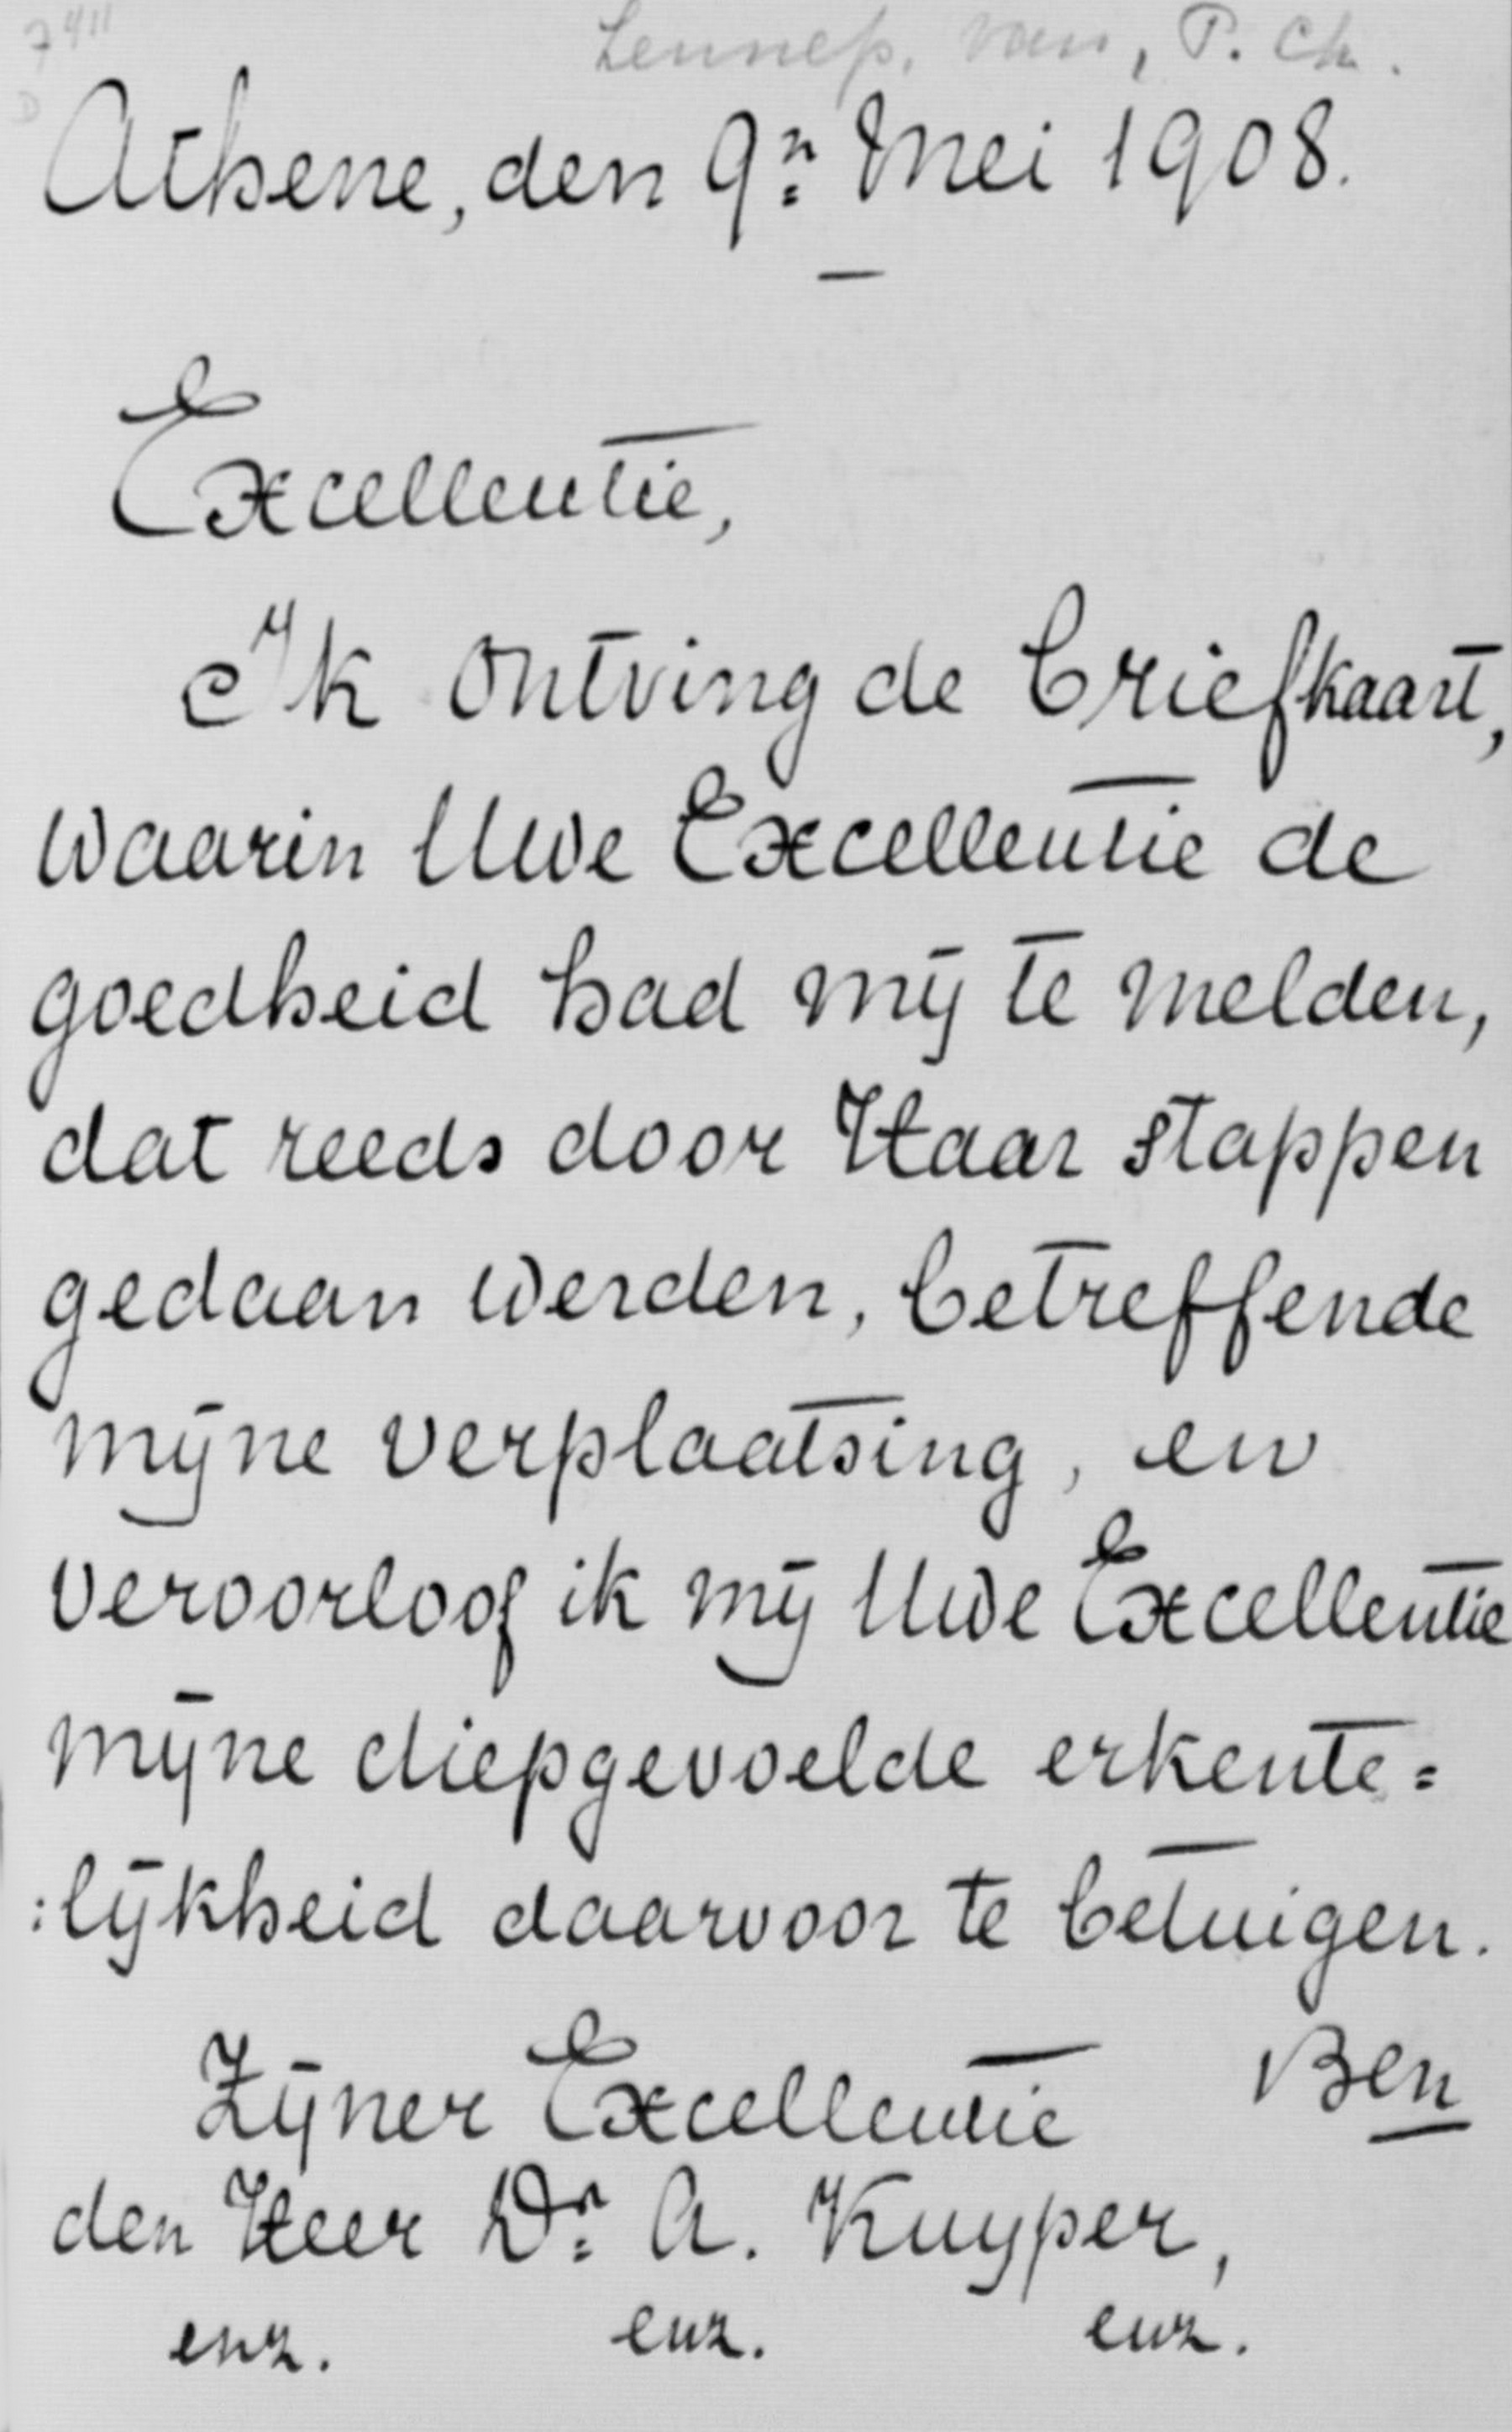 7411
Lennep, van, P. Ch.
D
Athene, den 9n Mei 1908.
Excellentie,
Ik ontving de briefkaart,
waarin Uwe Excellentie de
goedheid had mij te melden,
dat reeds door Haar stappen
gedaan werden, betreffende
mijne verplaatsing, en
veroorloof ik mij Uwe Excellentie
mijne diepgevoelde erkente=
:lijkheid daarvoor te betuigen.
Ben
Zijner Excellentie
den Heer Dr. A. Kuyper,
enz. enz. enz.